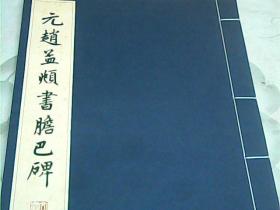 元趙孟頫書膽巴碑